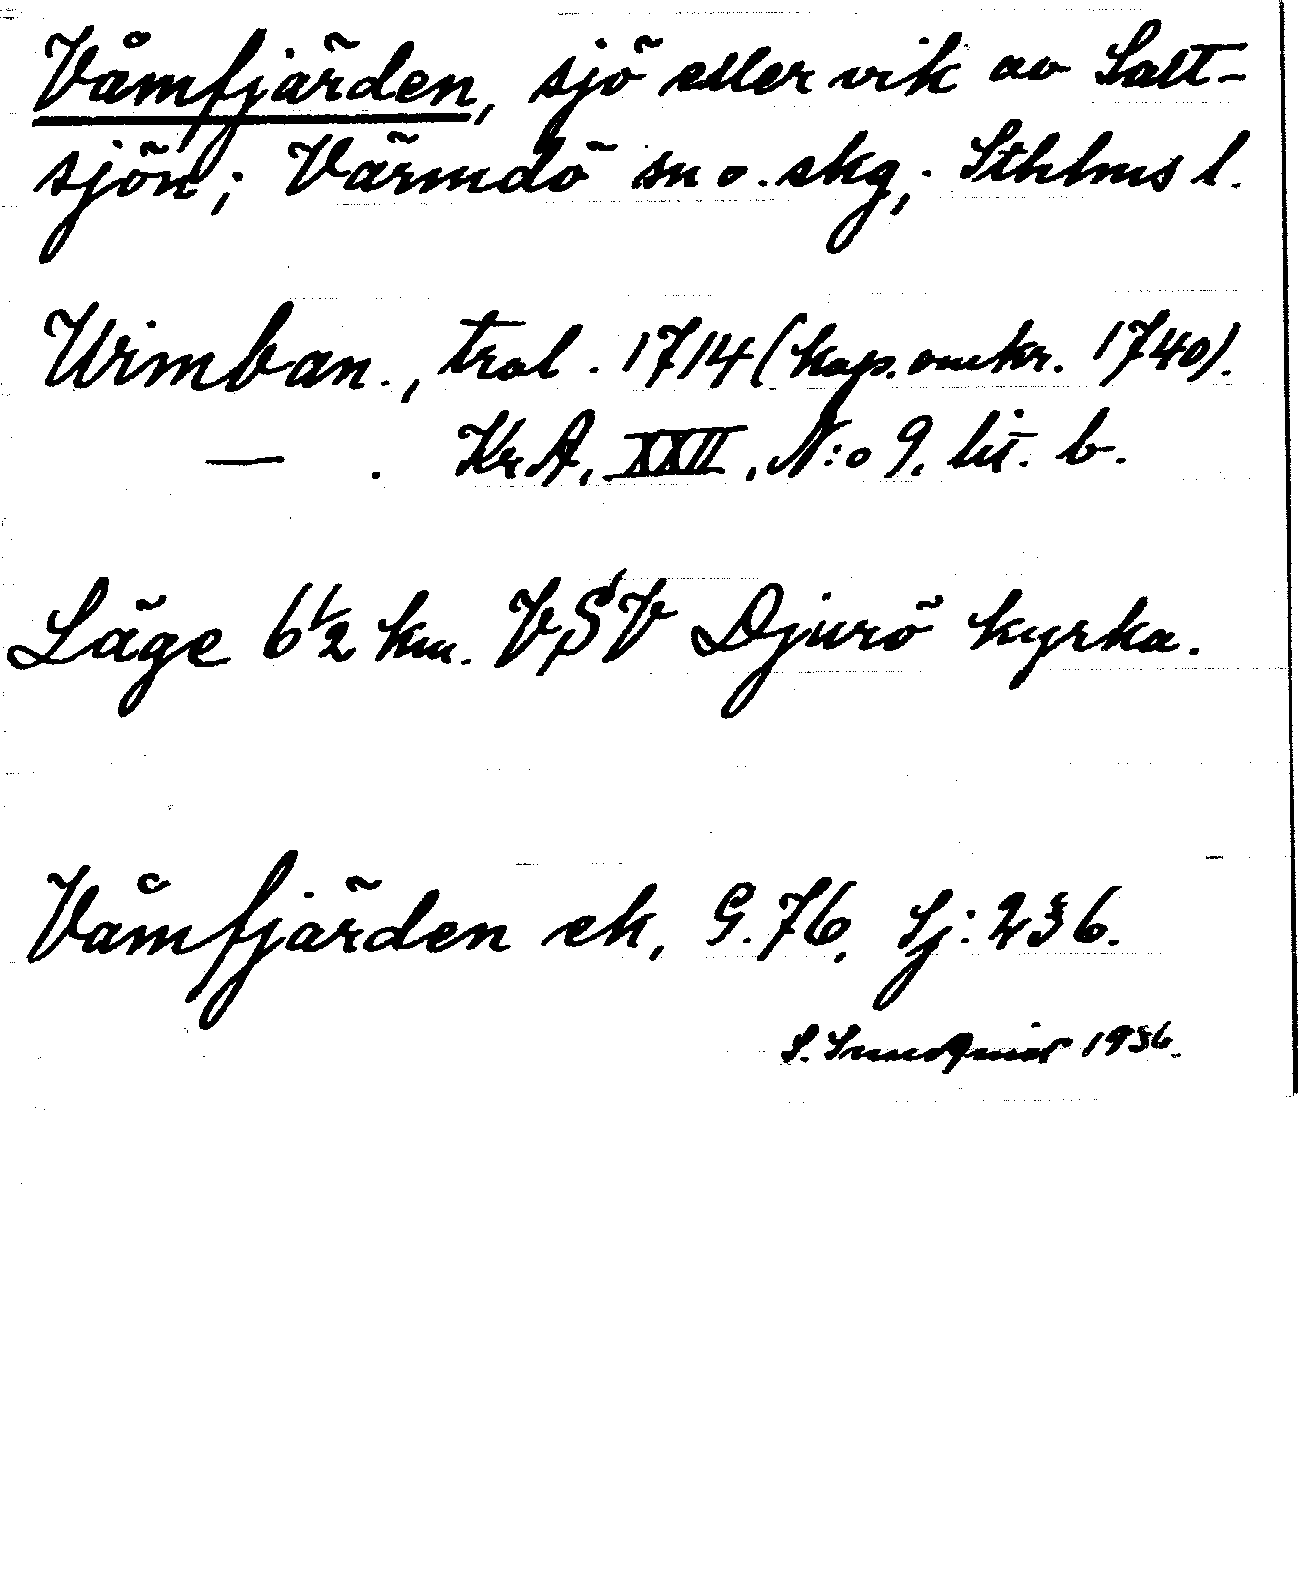 Våmfjärden, sjö eller vik av Salt-
sjön; Värmdö sn o. skg, Sthlms l.
Wimban., tral. 1714 (kop. omkr. 1740).
— . KrA, XXII, N:o 9. lit. b.
Läge 6 1/2 km. VSV Djurö kyrka.
Våmfjärden ek, G. 76, Sj: 236.
S. Sundqvist 1936.